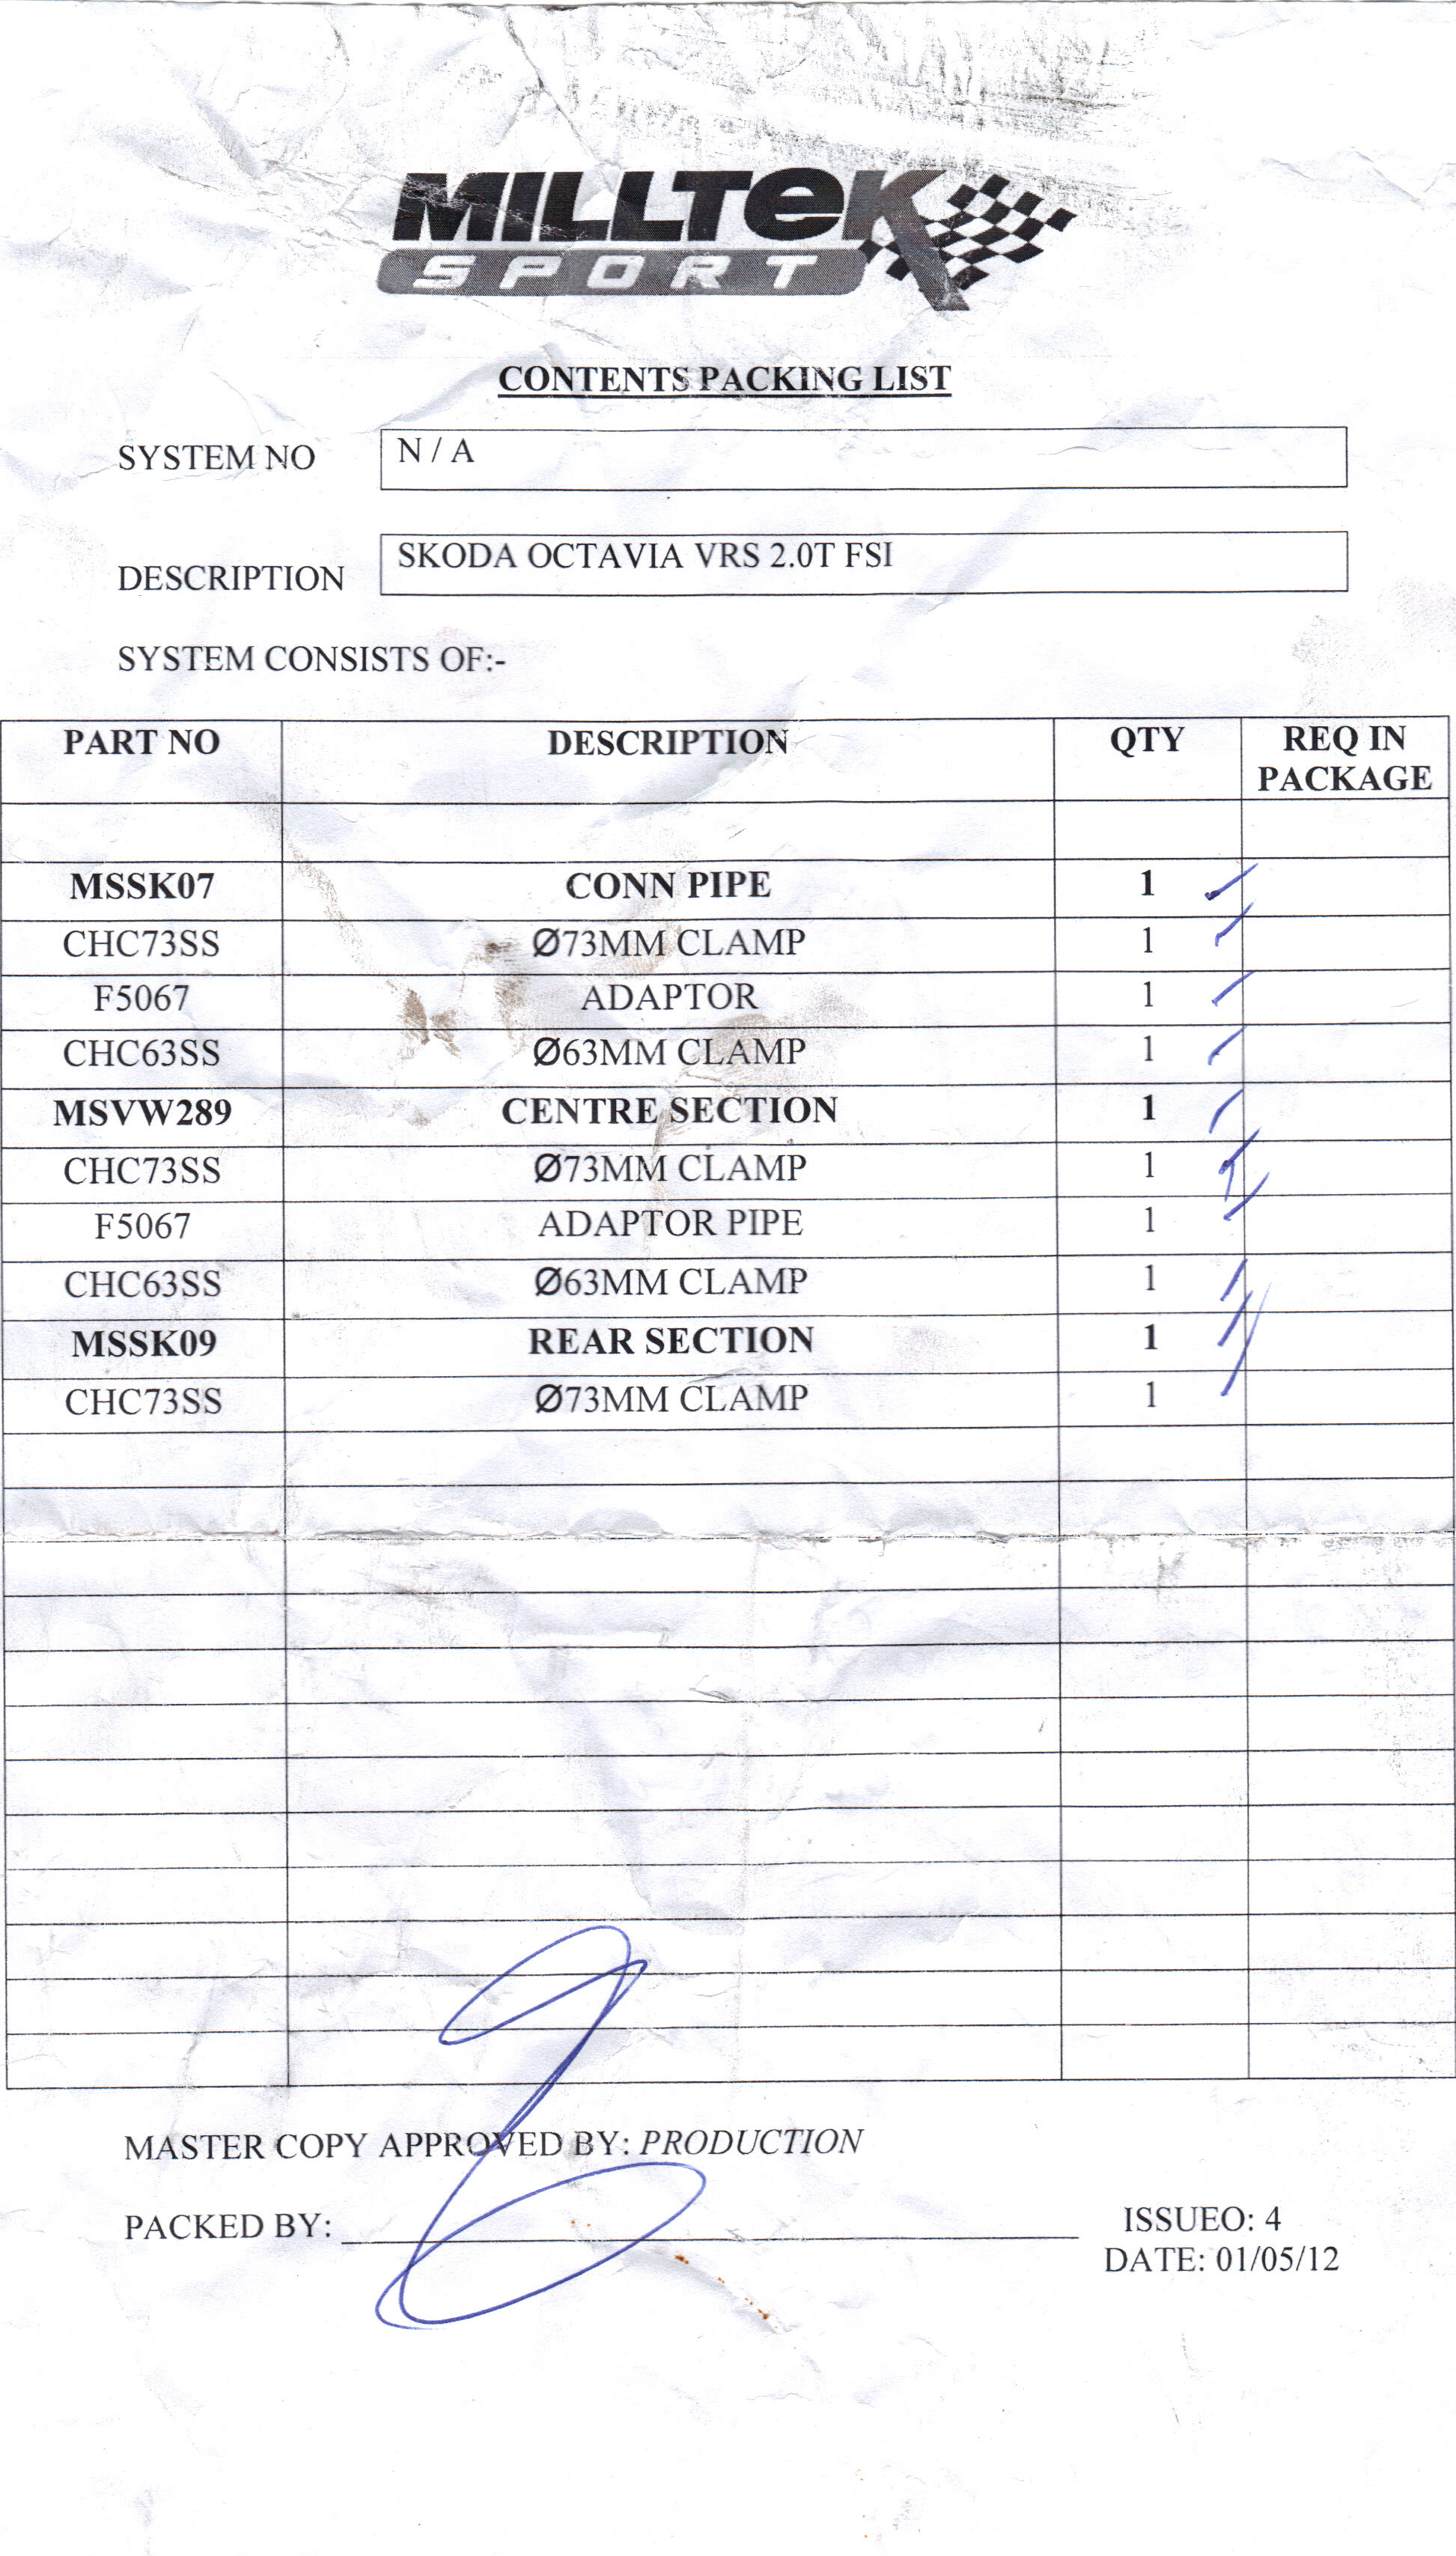 MILLTEK
SPORT
CONTENTS PACKING LIST
SYSTEM NO N / A
DESCRIPTION SKODA OCTAVIA VRS 2.0T FSI
SYSTEM CONSISTS OF:-
PART NO DESCRIPTION QTY REQ IN PACKAGE
MSSK07 CONN PIPE 1
CHC73SS Ø73MM CLAMP 1
F5067 ADAPTOR 1
CHC63SS Ø63MM CLAMP 1
MSVW289 CENTRE SECTION 1
CHC73SS Ø73MM CLAMP 1
F5067 ADAPTOR PIPE 1
CHC63SS Ø63MM CLAMP 1
MSSK09 REAR SECTION 1
CHC73SS Ø73MM CLAMP 1
MASTER COPY APPROVED BY: PRODUCTION
PACKED BY: ISSUEO: 4
DATE: 01/05/12